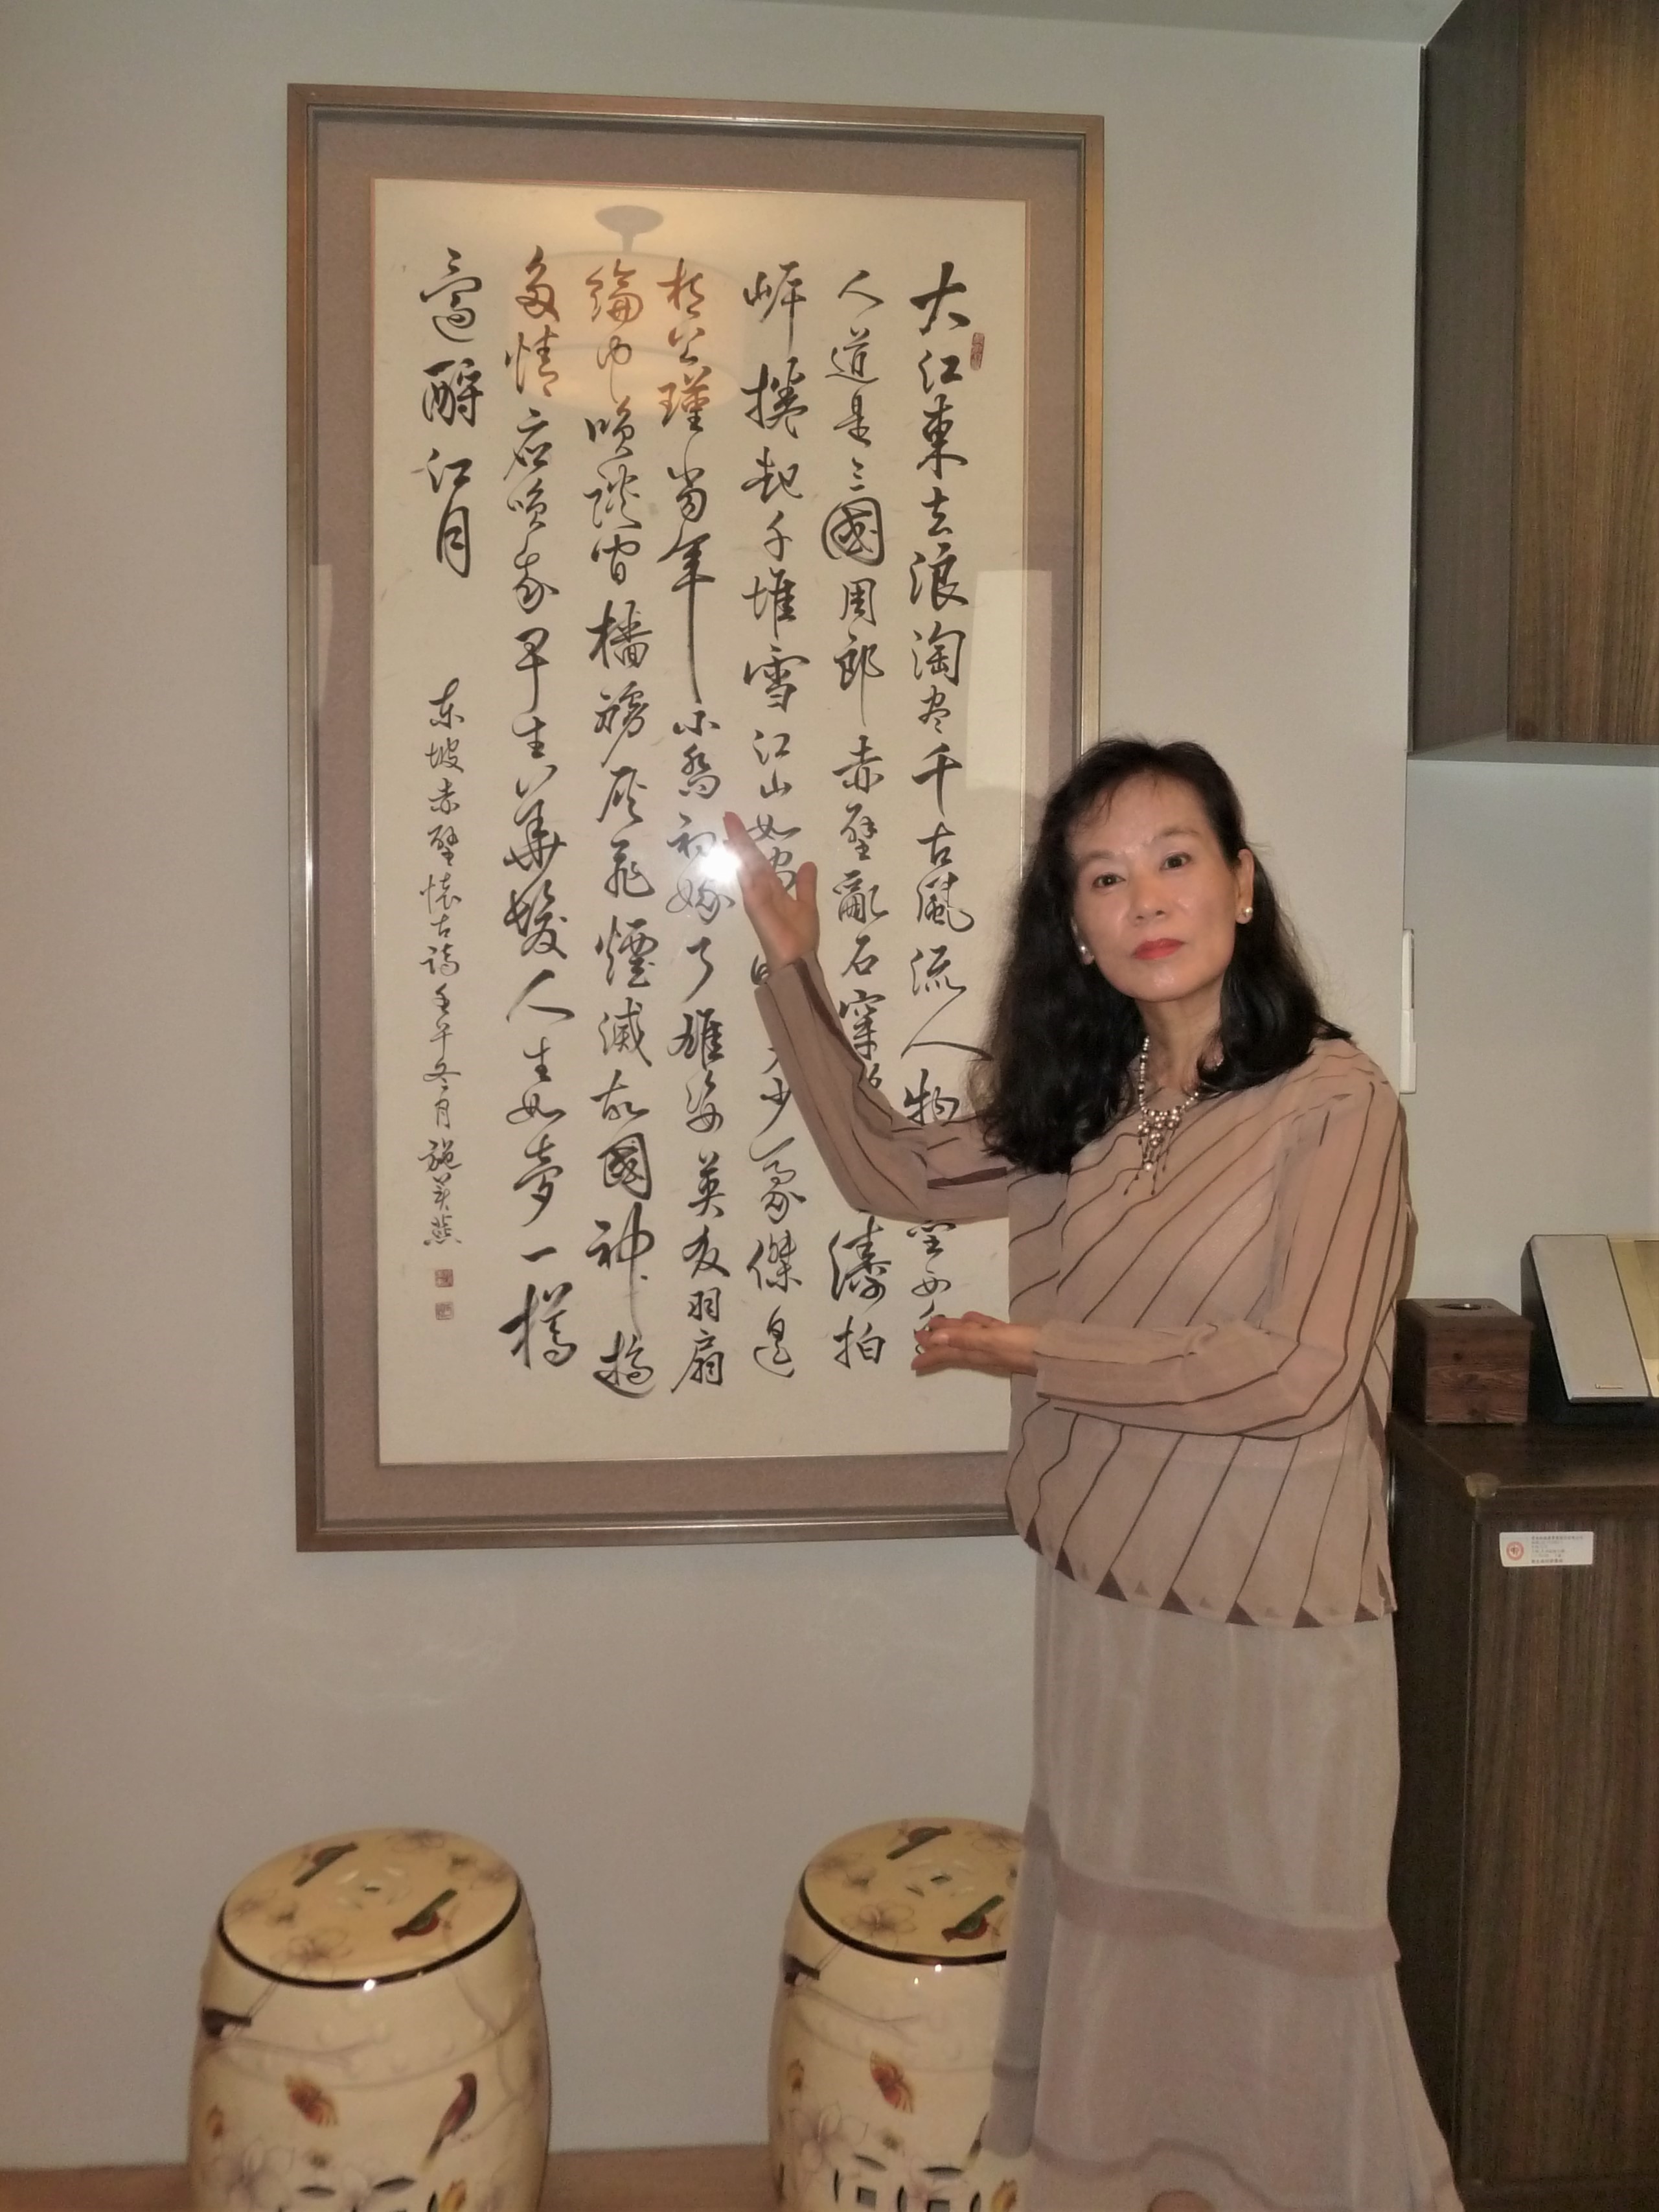 大江東去浪淘尽千古風流人物壘西
人道是三國周郎赤壁亂石穿濤拍
岸捲起千堆雪江山如畫少豪傑遥
想公瑾当年小喬初嫁了雄姿英发羽扇
綸巾笑談間檣櫓灰飛煙滅故國神遊
多情应笑我早生華髮人生如夢一樽
還酹江月
东坡赤壁懷古詩壬午冬月施美燕